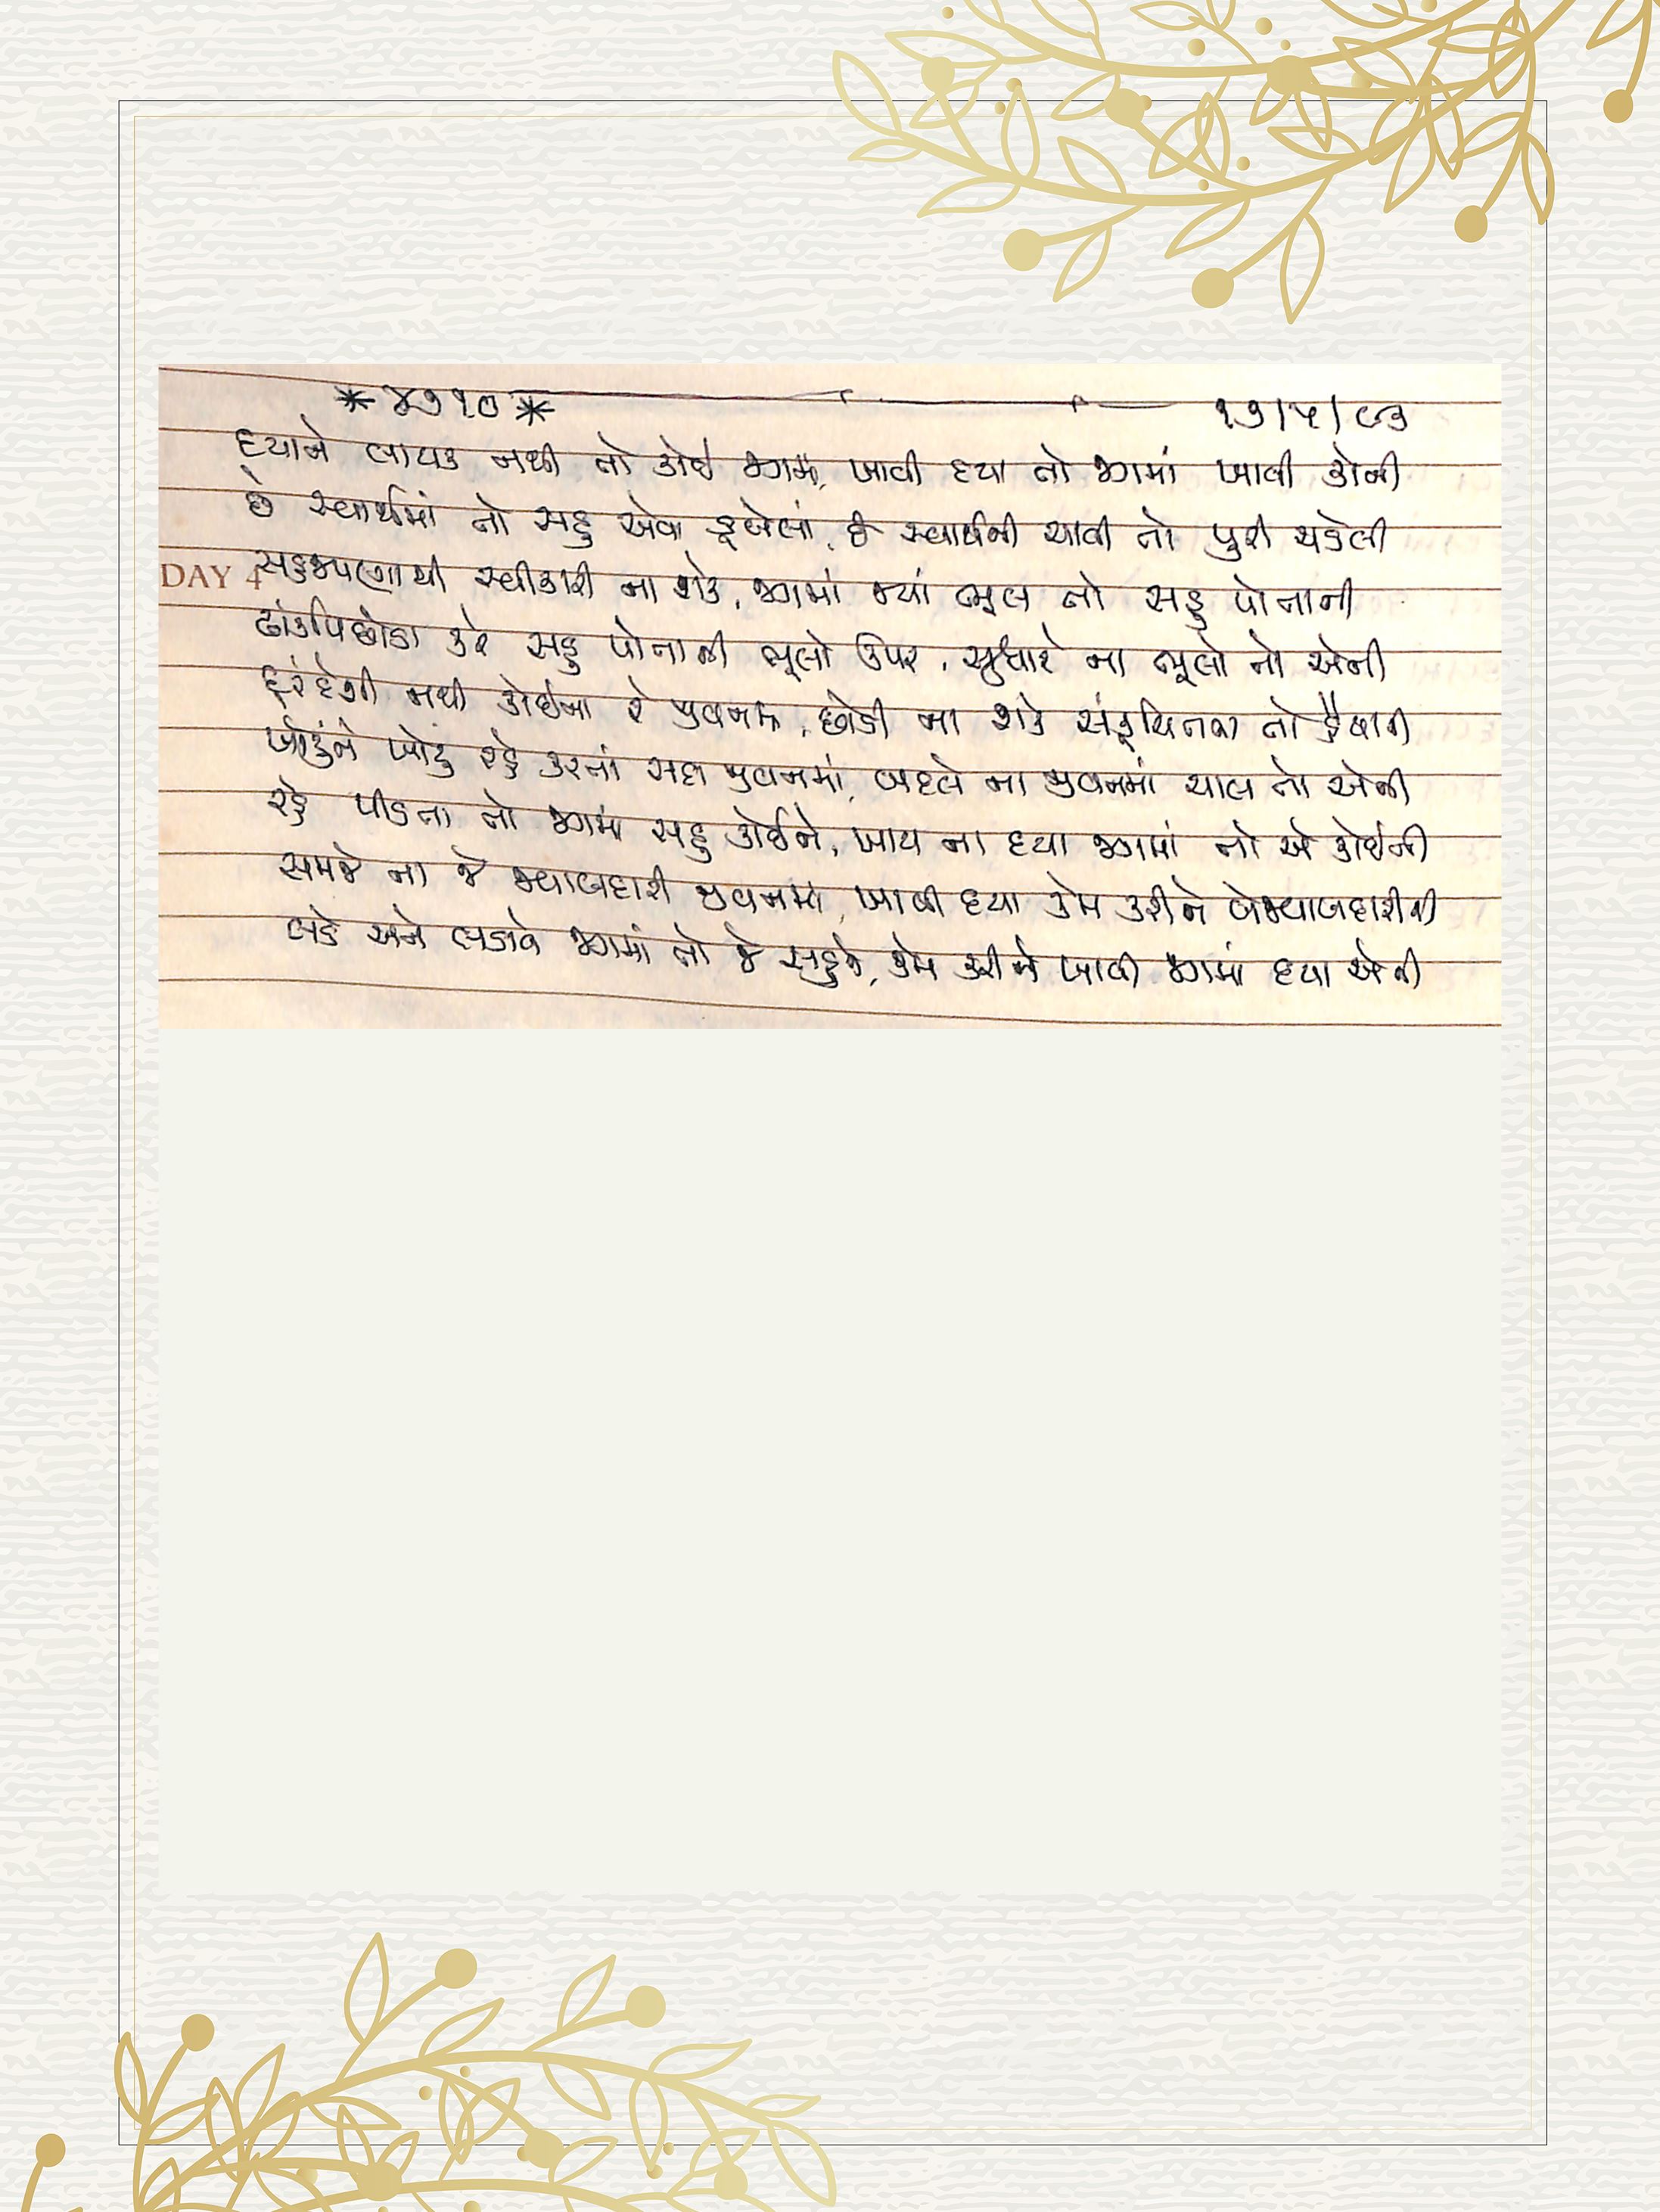 * ૪૭૧૦ * ૧૭/૫/૯૩
દયાને લાયક નથી તો કોઈ જગમાં, ખાવી દયા તો જગમાં ખાવી કોની
છે સ્વાર્થમાં તો સહુ એવા ડૂબેલાં, છે સ્વાર્થની ચાવી તો પુરી ચડેલી
સહજપણાથી સ્વીકારી ના શકે, જગમાં જ્યાં ભૂલ તો સહુ પોતાની
ઢાંકપિછોડા કરે સહુ પોતાની ભૂલો ઉપર, સુધારે ના ભૂલો તો એની
દૂરંદેશી નથી કોઈના રે જીવનમાં, છોડી ના શકે સંકૂચિતતા તો હૈયાની
ખોટુંને ખોટું રહે કરતાં સદા જીવનમાં, બદલે ના જીવનમાં ચાલ તો એની
રહે પીડતા તો જગમાં સહુ કોઈને, ખાય ના દયા જગમાં તો એ કોઈની
સમજે ના જે જવાબદારી જીવનમાં, ખાવી દયા કેમ કરીને બેજવાબદારીની
લડે અને લડાવે જગમાં તો જે સહુને, કેમ કરીને ખાવી જગમાં દયા એની
DAY 4